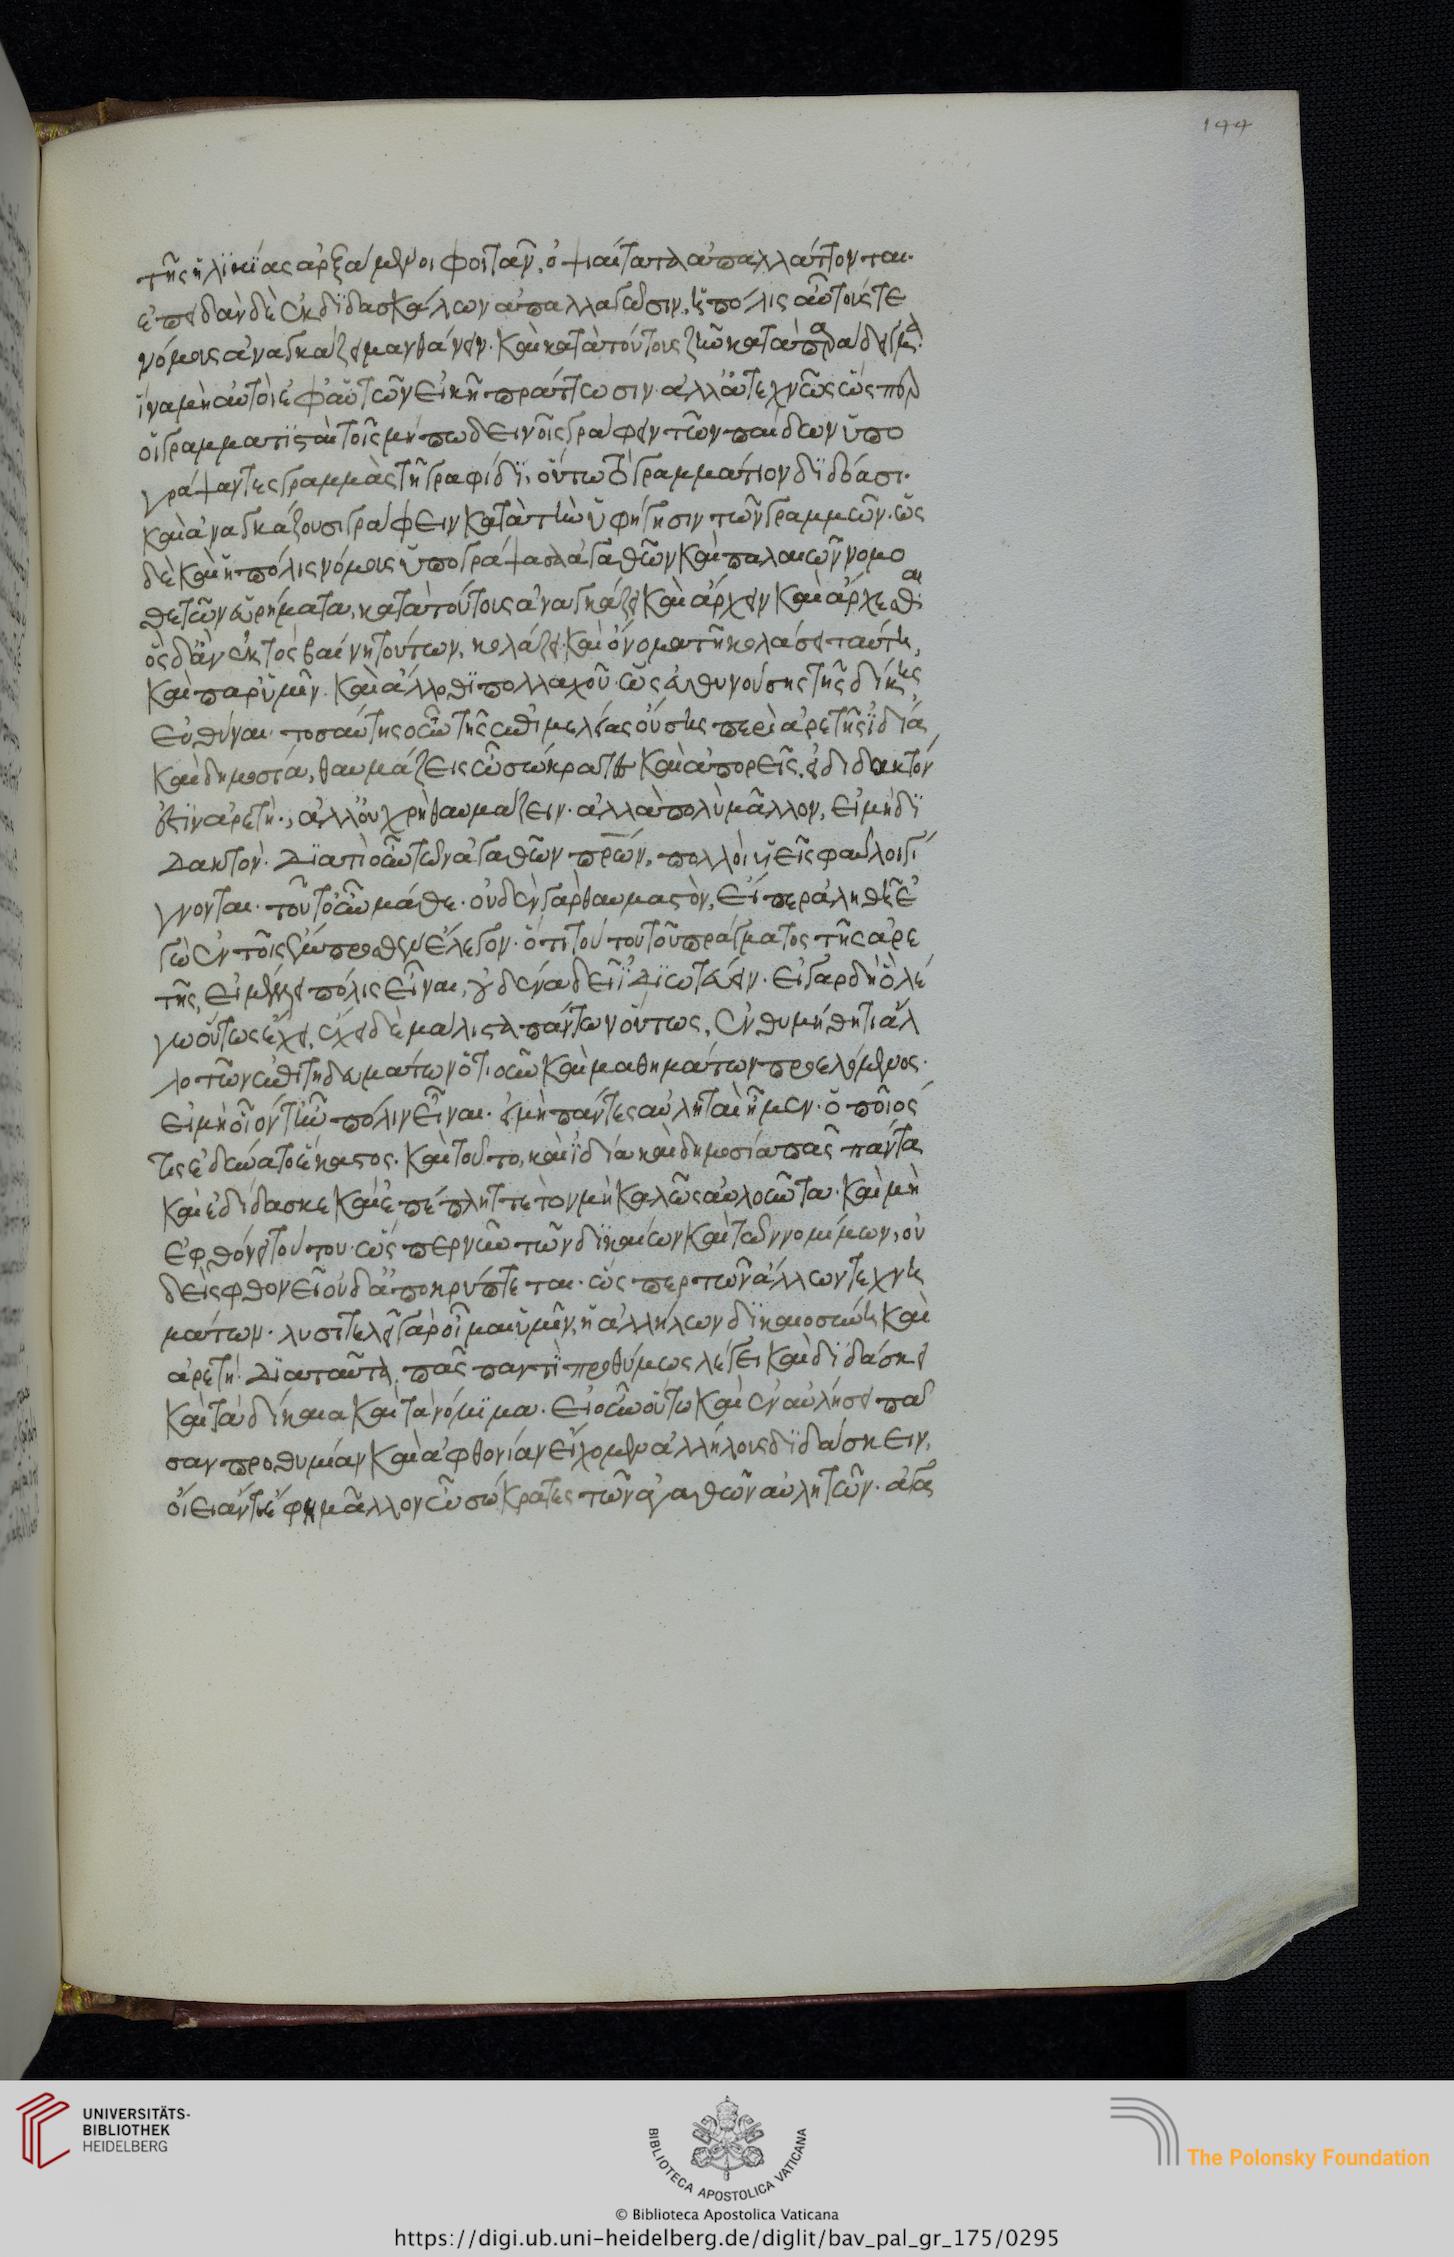 144
τῆς ἡλϊκίας ἀρξάμενοι φοιτᾶν, ὀψιαίτατα ἀπαλλάττονται.
ἐπειδὰν δὲ ἐκ δϊδασκάλων ἀπαλλαγῶσιν, ἡ πόλις αὖ τούς τε
νόμους ἀναγκάζει μανθάνειν. καὶ κατὰ τούτους ζῆν κατὰ παράδειγμα.
ἵνα μὴ αὐτοὶ ἐφ αὑτῶν εἰκῆ πράττωσιν. ἀλλ' ἀτεχνῶς ὥσπερ
οἱ γραμματϊσταὶ τοῖς μήπω δεινοῖς γράφειν τῶν παίδων ὑπο
γράψαντες γραμμὰς τῇ γραφίδϊ, οὕτω τὸ γραμμάτιον δϊδόασι.
καὶ ἀναγκάζουσι γράφειν κατὰ τὴν ὑφήγησιν τῶν γραμμῶν. ὣς
δὲ καὶ ἡ πόλις νόμους ὑπογράψασα ἀγαθῶν καὶ παλαιῶν νομο
θετῶν εὑρήματα, κατὰ τούτους ἀναγκάζει καὶ ἄρχειν καὶ ἄρχεσθαι
ὃς δ' ἂν ἐκτὸς βαίνῃ τούτων, κολάζει. καὶ ὄνομα τῇ κολάσει ταύτῃ,
καὶ παρ' ὑμῖν. καὶ ἄλλοθϊ πολλαχοῦ. ὡς εὐθυνούσης τῆς δίκης,
εὐθύναι. τοσαύτης οὖν τῆς ἐπιμελείας οὔσης περὶ ἀρετῆς ἰδίᾳ
καὶ δημοσίᾳ, θαυμάζεις ὦ σώκρατες καὶ ἀπορεῖς, εἰ διδακτόν
ἐστϊν ἀρετή., ἀλλ' οὐ χρὴ θαυμάζειν. ἀλλὰ πολὺ μᾶλλον, εἰ μὴ δϊ
δακτόν. Δϊατί οὖν τῶν ἀγαθῶν πρων, πολλοὶ υἱεῖς φαῦλοι γί
γνονται. τοῦτο αὖ μάθε. οὐδὲν γὰρ θαυμαστὸν, εἴπερ ἀληθῆ ἐ
γὼ ἐν τοῖς ἔμπροσθεν ἔλεγον. ὅτι τούτου τοῦ πράγματος τῆς ἀρε
τῆς, εἰ μέλλει πόλις εἶναι, οὐδένα δεῖ ἰδϊωτεύειν. εἰ γὰρ δὴ ὃ λέ
γω οὕτως ἔχει, ἔχει δὲ μάλιστα πάντων οὕτως, ἐνθυμήθητι ἄλ
λο τῶν ἐπιτηδευμάτων ὁτιοῦν καὶ μαθημάτων προελόμενος.
εἰ μὴ οἷον τ' ἦν πόλιν εἶναι. εἰ μὴ πάντες αὐληταὶ ἦμεν. ὁποῖός
τις ἐδύνατο ἕκαστος. καὶ τοῦτο, καὶ ἰδίᾳ καὶ δημοσίᾳ πᾶς πάντα
καὶ ἐδίδασκε καὶ ἐπέπληττε τὸν μὴ καλῶς αὐλοῦντα. καὶ μὴ
ἐφθόνει τούτου. ὥσπερ νῦν τῶν δϊκαίων καὶ τῶν νομίμων, οὐ
δεὶς φθονεῖ οὐδ' ἀποκρύπτεται. ὥσπερ τῶν ἄλλων τεχνη
μάτων. λυσιτελεῖ γὰρ οἶμαι ὑμῖν, ἡ ἀλλήλων δϊκαιοσύνη καὶ
ἀρετή. Δϊα ταῦτα, πᾶς παντὶ προθύμως λέγει καὶ δϊδάσκει
καὶ τὰ δίκαια καὶ τὰ νόμϊμα. εἰ οὖν οὕτω καὶ ἐν αὐλήσει πᾶ
σαν προθυμίαν καὶ ἀφθονίαν εἴχομεν ἀλλήλους δϊδάσκειν,
οἴει ἄν τι ἔφη μᾶλλον ὦ σώκρατες τῶν ἀγαθῶν αὐλητῶν. ἀγα
UNIVERSITÄTS-
BIBLIOTHEK
HEIDELBERG
BIBLIOTECA APOSTOLICA VATICANA
The Polonsky Foundation
© Biblioteca Apostolica Vaticana
https://digi.ub.uni-heidelberg.de/diglit/bav_pal_gr_175/0295